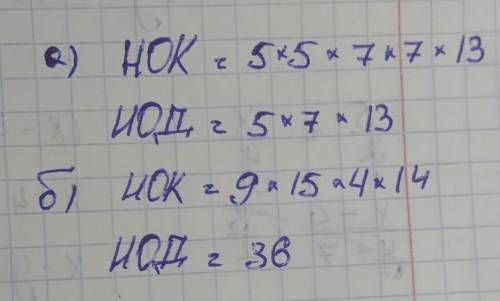 а) НОК = 5 × 5 × 7 × 7 × 13
НОД = 5 × 7 × 13
б) НОК = 9 × 15 × 4 × 14
НОД = 36